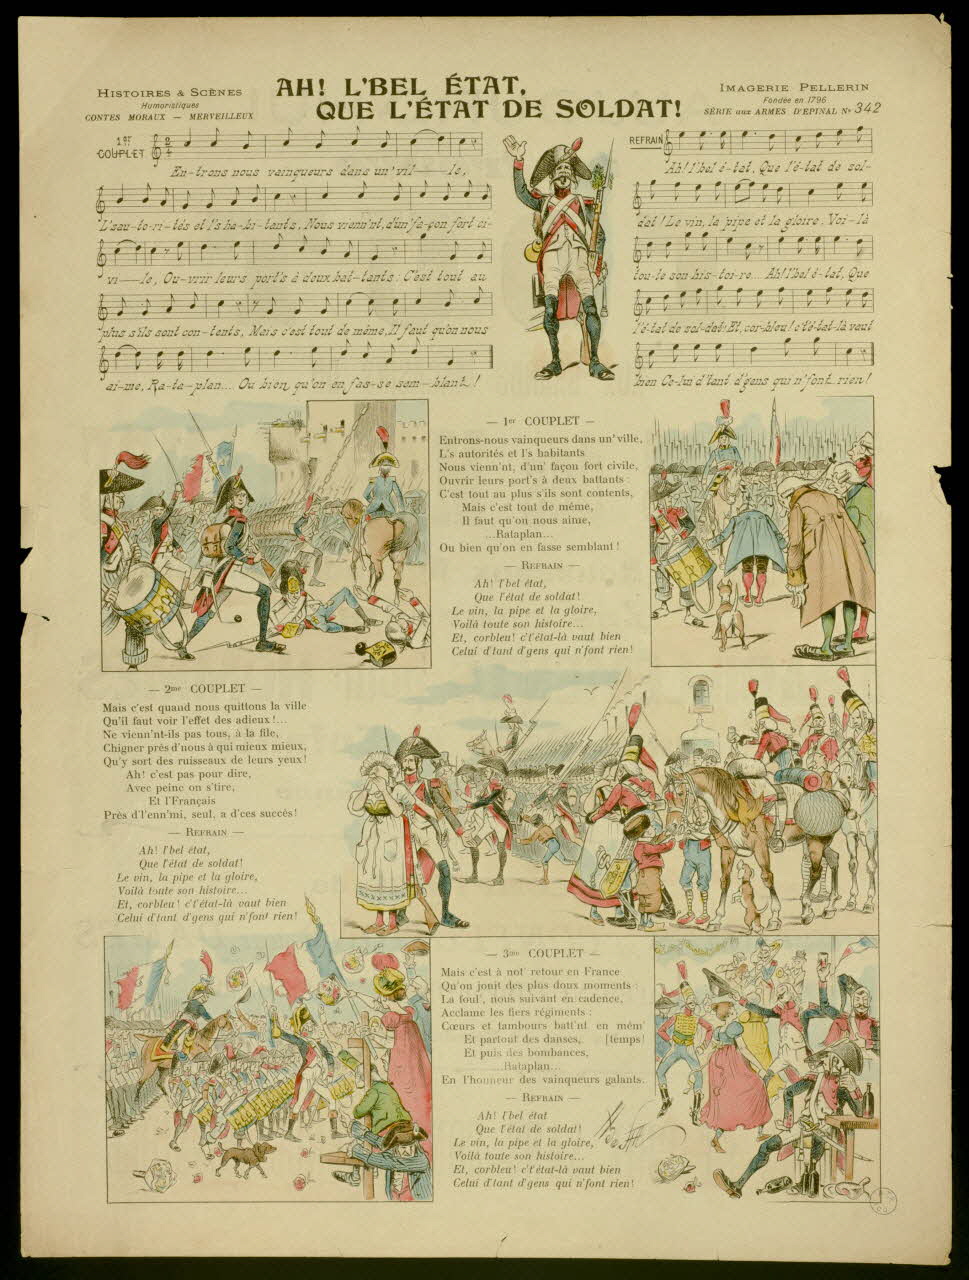 HISTOIRES & SCÈNES
Humoristiques
CONTES MORAUX — MERVEILLEUX
AH! L'BEL ÉTAT,
QUE L'ÉTAT DE SOLDAT!
IMAGERIE PELLERIN
Fondée en 1796
SÉRIE aux ARMES D'EPINAL No 342
1er COUPLET
En-trons nous vainqueurs dans un' vil—le,
L's au-to-ri-tés et l's ha-bi-tants, Nous vienn'nt, d'un' fa-çon fort ci-
vi—le, Ou-vrir leurs port's à deux bat-tants: C'est tout au
plus s'ils sont con-tents, Mais c'est tout de même, Il faut qu'on nous
ai-me, Ra-ta-plan... Ou bien qu'on en fas-se sem-blant!
REFRAIN
Ah! l'bel é-tat, Que l'é-tat de sol-
dat! Le vin, la pipe et la gloire: Voi-là
tou-te son his-toi-re... Ah! l'bel é-tat, Que
l'é-tat de sol-dat! Et, cor-bleu! c't é-tat-là vaut
bien Ce-lui d'tant d'gens qui n'font rien!
— 1er COUPLET —
Entrons-nous vainqueurs dans un' ville,
L's autorités et l's habitants
Nous vienn'nt, d'un' façon fort civile,
Ouvrir leurs port's à deux battants :
C'est tout au plus s'ils sont contents,
Mais c'est tout de même,
Il faut qu'on nous aime,
...Rataplan...
Ou bien qu'on en fasse semblant !
— REFRAIN —
Ah! l'bel état,
Que l'état de soldat!
Le vin, la pipe et la gloire,
Voilà toute son histoire...
Et, corbleu! c't'état-là vaut bien
Celui d'tant d'gens qui n'font rien!
— 2me COUPLET —
Mais c'est quand nous quittons la ville
Qu'il faut voir l'effet des adieux !...
Ne vienn'nt-ils pas tous, à la file,
Chigner près d'nous à qui mieux mieux,
Qu'y sort des ruisseaux de leurs yeux !
Ah! c'est pas pour dire,
Avec peine on s'tire,
Et l'Français
Près d'l'enn'mi, seul, a d'ces succès!
— REFRAIN —
Ah! l'bel état,
Que l'état de soldat!
Le vin, la pipe et la gloire,
Voilà toute son histoire...
Et, corbleu! c't'état-là vaut bien
Celui d'tant d'gens qui n'font rien!
— 3me COUPLET —
Mais c'est à not' retour en France
Qu'on jouit des plus doux moments :
La foul', nous suivant en cadence,
Acclame les fiers régiments :
Cœurs et tambours batt'nt en mêm'
Et partout des danses, [temps
Et puis des bombances,
...Rataplan...
En l'honneur des vainqueurs galants.
— REFRAIN —
Ah! l'bel état
Que l'état de soldat!
Le vin, la pipe et la gloire,
Voilà toute son histoire...
Et, corbleu! c't'état-là vaut bien
Celui d'tant d'gens qui n'font rien!